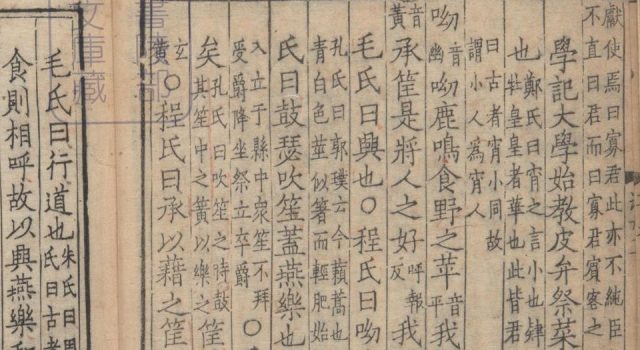 獻使焉曰寡君此亦不純臣
不直曰君而曰寡君賓客之
學記大學始教皮弁祭菜
也鄭氏曰宵之言小也肄
牡皇皇者華也此皆君
曰古者宵小同故
謂小人爲宵人
呦音幽呦鹿鳴食野之苹音平我
音黃承筐是將人之好呼報反我
毛氏曰興也○程氏曰呦
孔氏曰郭璞云今藾蒿也
青白色莖似箸而輕肥始
氏曰鼓瑟吹笙蓋燕樂也
入立于縣中衆笙不拜
受爵降坐祭立卒爵○
矣孔氏曰吹笙之時鼓
其笙中之簧以樂之筐
玄○程氏曰承以藉之筐
毛氏曰行道也朱氏曰周
氏曰古者
食則相呼故以興燕樂
書陵部
文庫藏